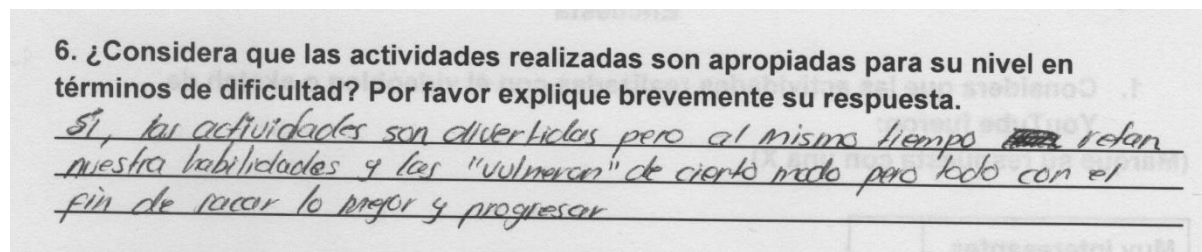 6. ¿Considera que las actividades realizadas son apropiadas para su nivel en
términos de dificultad? Por favor explique brevemente su respuesta.
Si, las actividades son divertidas pero al mismo tiempo retan
nuestra habilidades y las "vulneran" de cierto modo pero todo con el
fin de sacar lo mejor y progresar